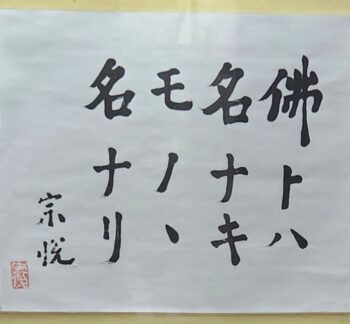 佛トハ
名ナキ
モノヽ
名ナリ
宗悦